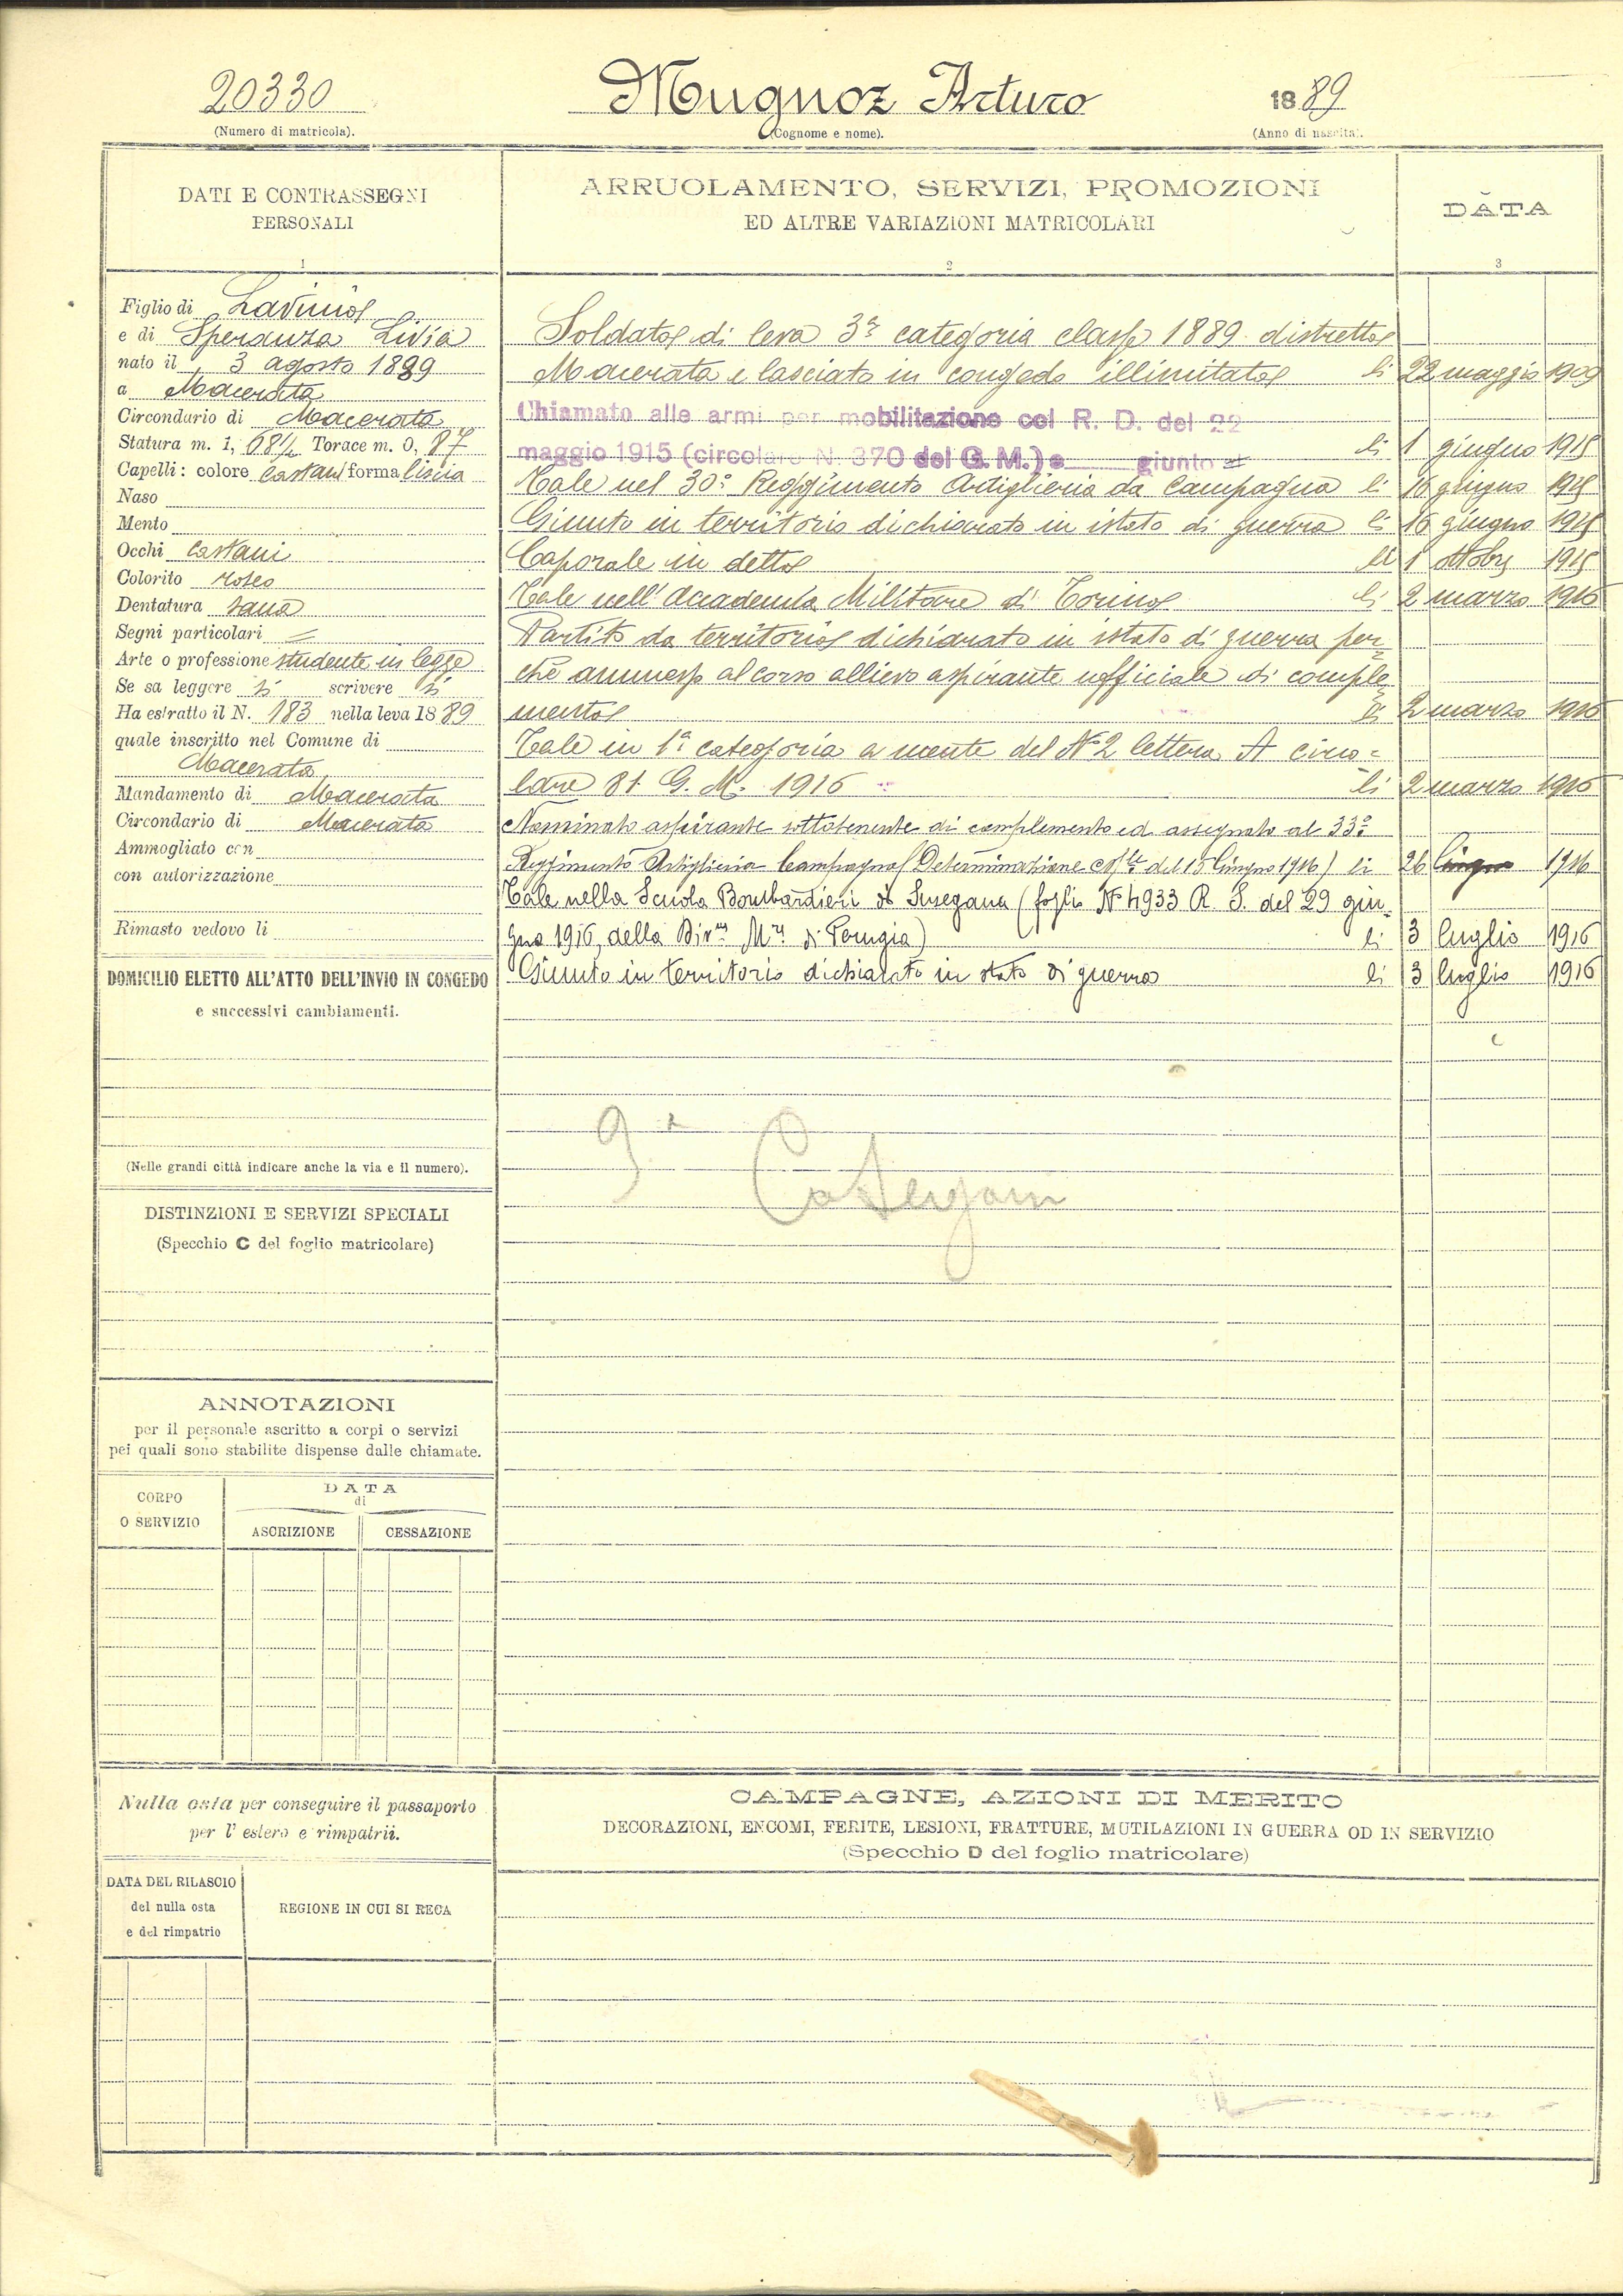 20330
(Numero di matricola).
Mugnoz Arturo
(Cognome e nome).
1889
(Anno di nascita).
DATI E CONTRASSEGNI
PERSONALI
1
ARRUOLAMENTO, SERVIZI, PROMOZIONI
ED ALTRE VARIAZIONI MATRICOLARI
2
DATA
3
Figlio di Lavinio
e di Speranza Livia
nato il 3 agosto 1889
a Macerata
Circondario di Macerata
Statura m. 1, 68½ Torace m. 0, 87
Capelli: colore castani forma liscia
Naso
Mento
Occhi castani
Colorito roseo
Dentatura sana
Segni particolari =
Arte o professione studente in legge
Se sa leggere sì scrivere sì
Ha estratto il N. 183 nella leva 1889
quale inscritto nel Comune di
Macerata
Mandamento di Macerata
Circondario di Macerata
Ammogliato con
con autorizzazione
Rimasto vedovo li
DOMICILIO ELETTO ALL'ATTO DELL'INVIO IN CONGEDO
e successivi cambiamenti.
(Nelle grandi città indicare anche la via e il numero).
DISTINZIONI E SERVIZI SPECIALI
(Specchio C del foglio matricolare)
ANNOTAZIONI
per il personale ascritto a corpi o servizi
pei quali sono stabilite dispense dalle chiamate.
CORPO
O SERVIZIO
DATA
di
ASCRIZIONE
CESSAZIONE
Soldato di leva 3ª categoria classe 1889 distretto
Macerata e lasciato in congedo illimitato li 22 maggio 1909
Chiamato alle armi per mobilitazione col R. D. del 22
maggio 1915 (circolare N. 370 del G. M.) e giunto li 1 giugno 1915
Tale nel 30° Reggimento Artiglieria da Campagna li 16 giugno 1915
Giunto in territorio dichiarato in istato di guerra li 16 giugno 1915
Caporale in detto li 1 ottobre 1915
Tale nell'Accademia Militare di Torino li 2 marzo 1916
Partito da territorio dichiarato in istato di guerra per-
chè ammesso al corso allievo aspirante ufficiale di comple-
mento li 2 marzo 1916
Tale in 1ª categoria a mente del N° 2 lettera A circo=
lare 81 G. M. 1916 li 2 marzo 1916
Nominato aspirante sottotenente di complemento ed assegnato al 33°
Reggimento Artiglieria Campagna (Determinazione del 15 Giugno 1916) li 26 Giugno 1916
Tale nella Scuola Bombardieri di Susegana (foglio N° 4933 R. S. del 29 giu-
gno 1916, della Divne Mre di Perugia) li 3 luglio 1916
Giunto in territorio dichiarato in stato di guerra li 3 luglio 1916
3ª Categoria
Nulla osta per conseguire il passaporto
per l'estero e rimpatrii.
DATA DEL RILASCIO
del nulla osta
e del rimpatrio
REGIONE IN CUI SI RECA
CAMPAGNE, AZIONI DI MERITO
DECORAZIONI, ENCOMI, FERITE, LESIONI, FRATTURE, MUTILAZIONI IN GUERRA OD IN SERVIZIO
(Specchio D del foglio matricolare)